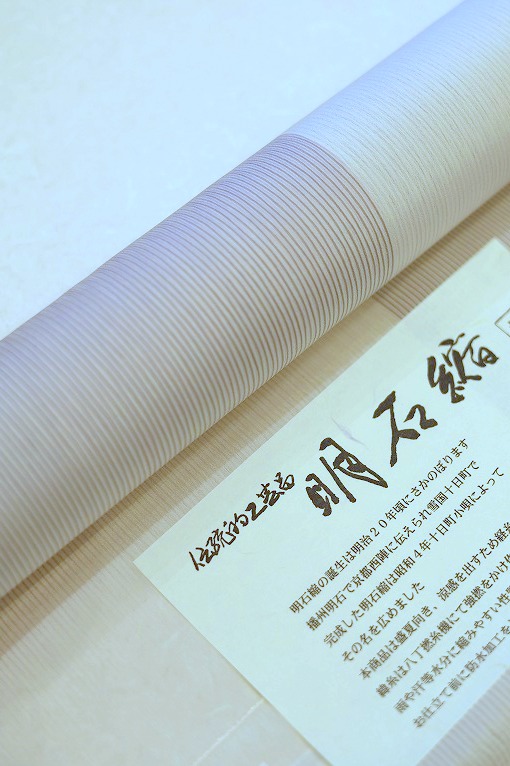 伝統的工芸品
明石縮
明石縮の誕生は明治20年頃にさかのぼります
播州明石で京都西陣に伝えられ雪国十日町で
完成した明石縮は昭和4年十日町小唄によって
その名を広めました
本商品は盛夏向き、涼感を出すため経糸
緯糸は八丁撚糸機にて強撚をかけ
雨や汗等水分に縮みやすい性
お仕立て前に防水加工を